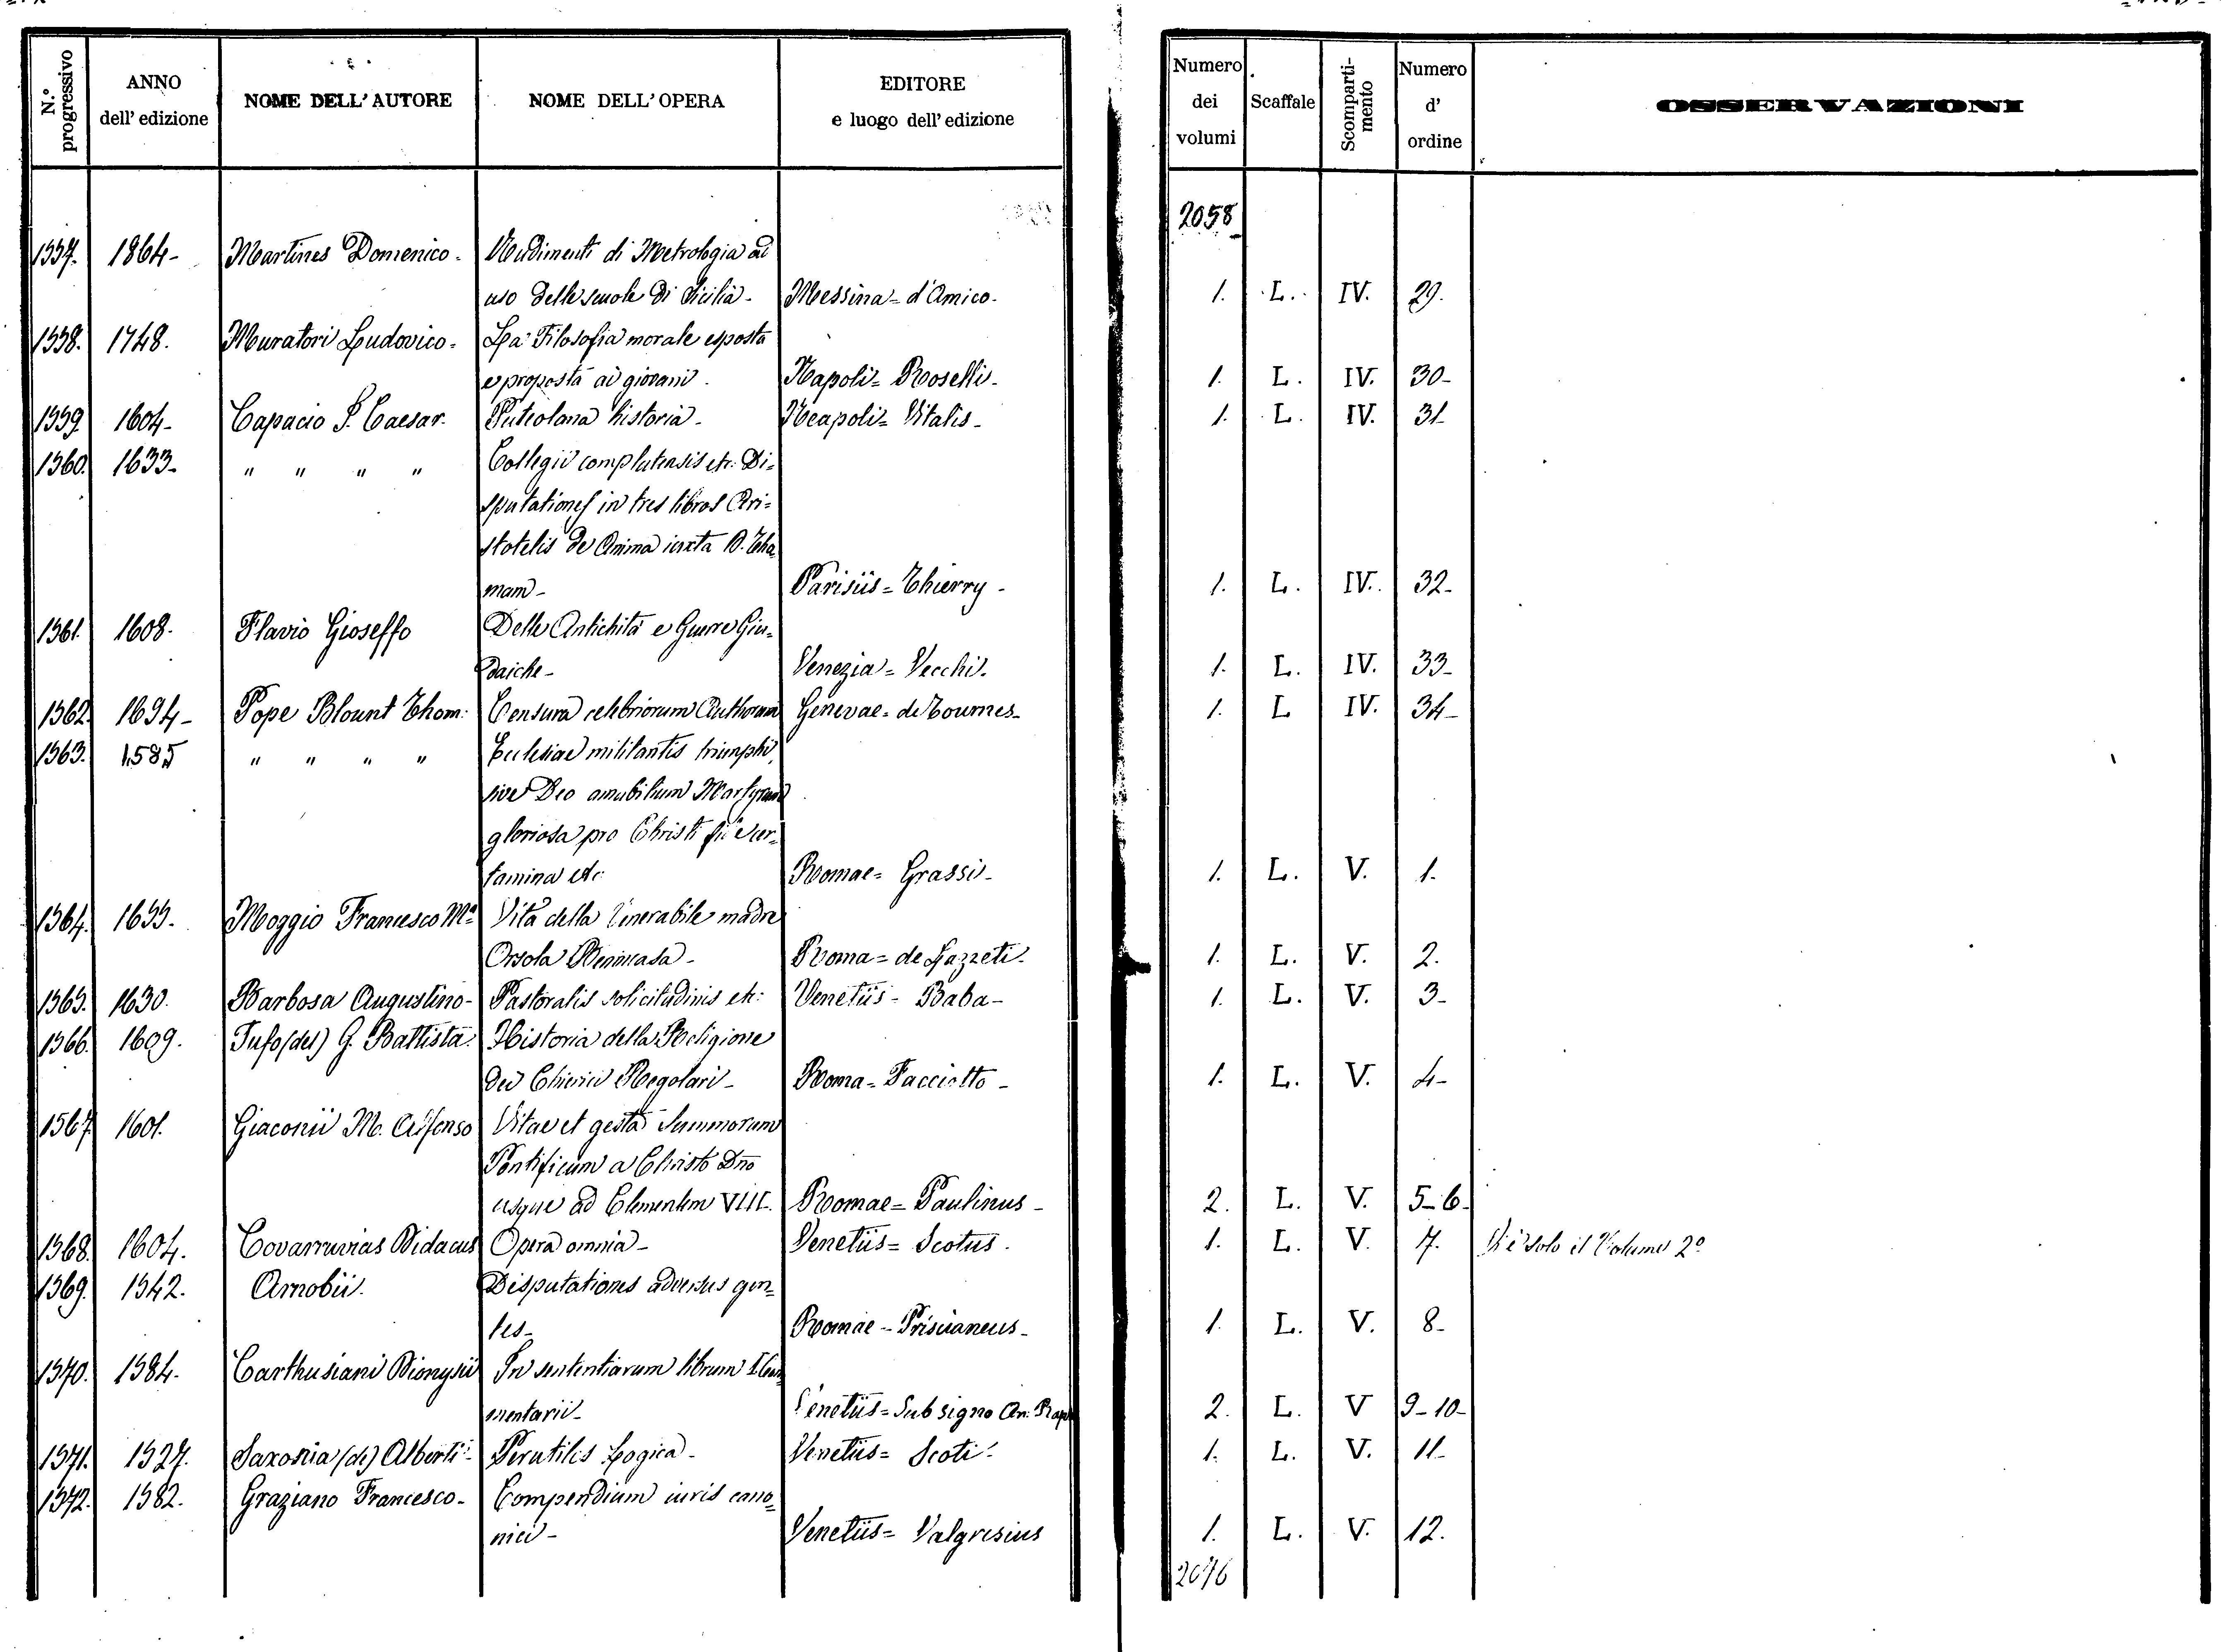 N.° progressivo
ANNO dell' edizione
NOME DELL' AUTORE
NOME DELL' OPERA
EDITORE e luogo dell' edizione
Numero dei volumi
Scaffale
Scomparti-mento
Numero d' ordine
OSSERVAZIONI
2058
1557. 1864- Martines Domenico. Rudimenti di Metrologia ad
uso delle scuole di Sicilia. Messina = d'Amico. 1. L. IV. 29.
1558. 1748. Muratori Ludovico. La Filosofia morale esposta
e proposta ai giovani. Napoli = Roselli. 1. L. IV. 30-
1559. 1604- Capacio J. Caesar. Puteolana historia. Neapoli = Vitalis. 1. L. IV. 31
1560. 1633- " " " " Collegii complutensis etc. Di=
sputationes in tres libros Ari=
stotelis de Anima iuxta D. Tho
mam- Parisiis = Thierry. 1. L. IV. 32-
1561. 1608. Flavio Gioseffo Delle Antichità e Guerre Giu=
daiche- Venezia = Vecchi. 1. L. IV. 33-
1562. 1694- Pope Blount Thom: Censura celebriorum Authorum Genevae = de Tournes- 1. L IV. 34-
1563. 1585 " " " " Ecclesiae militantis triumphi,
sive Deo amabilium Martyrum
gloriosa pro Christi fide cer=
tamina etc: Romae = Grassi- 1. L. V. 1.
1564. 1655. Moggio Francesco Ma Vita della Venerabile madre
Orsola Benincasa- Roma = de Lazzeri. 1. L. V. 2.
1565. 1630. Barbosa Augustino- Pastoralis solicitudinis etc: Venetiis - Baba- 1. L. V. 3-
1566. 1609. Tufo (del) G. Battista. Historia della Religione
dei Chierici Regolari- Roma = Facciotto- 1. L. V. 4-
1567. 1601. Giaconii M. Alfonso Vitae et gesta Summorum
Pontificum a Christo Dno
usque ad Clementem VIII. Romae = Paulinus- 2. L. V. 5-6.
1568. 1604. Covarruvias Didacus Opera omnia- Venetiis = Scotus. 1. L. V. 7. Vi è solo il Volume 2º
1569. 1542. Arnobii. Disputationes adversus gen=
tes- Romae - Priscianeus- 1. L. V. 8-
1570. 1584. Carthusiani Dionysii In sententiarum librum I Com=
mentarii- Venetiis = Sub signo An: 2. L. V 9-10-
1571. 1527. Saxonia (de) Alberti- Perutilis Logica- Venetiis = Scoti. 1. L. V. 11-
1572. 1582. Graziano Francesco- Compendium iuris cano=
nici- Venetiis = Valgrisius 1. L. V. 12.
2076